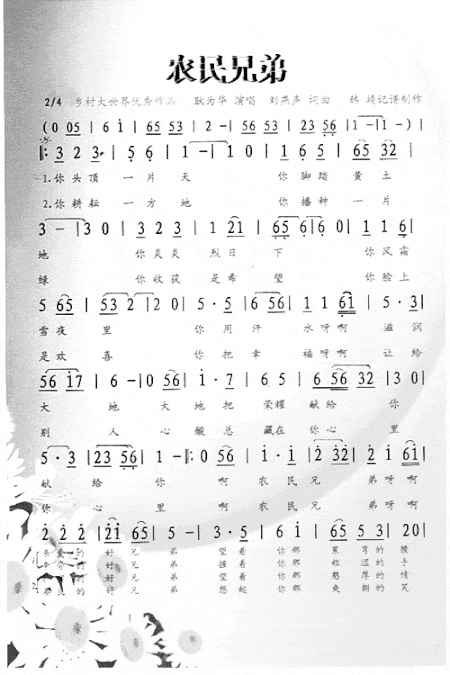 农民兄弟
2/4 乡村大世界优秀作品 耿为华 演唱 刘燕声 词曲 韩 靖记谱制作
(0 05 | 6 i | 65 53 | 2 - | 02 53 | 23 56 | 1 - | 1 -) |
|: 3 2 3 | 5 6 | 1 - | 1 0 | 1 0 5 | 1 6 | 65 32 |
1.你头顶 一片天 你脚踏 黄土
2.你耕耘 一方地 你播种 一片
3 - | 3 0 | 3 2 3 | 1 21 | 6 65 | 6 0 | 1 1 6 |
地 你炎炎 烈日 下 你风霜
绿 你收获 是希 望 你脸上
5 65 | 53 2 | 2 0 | 5 · 5 | 6 56 | 1 1 61 | 5 · 3 |
雪夜 里 你用汗 水呀啊 滋润
是欢 喜 你把幸 福呀啊 让给
56 17 | 6 - | 0 56 | i · 7 | 6 56 | 6 56 32 | 3 0 |
大 地 大地把 荣耀 献给 你
别 人 心酸总 藏在 你心 里
5 · 3 | 23 56 | 1 - :| 0 56 | i · i | 2 32 | 2 i 6i |
献 给 你 啊 农民兄 弟呀啊
你 心 里 啊 农民兄 弟呀啊
2 2 2 | 2i 65 | 5 - | 3 · 5 | 6 i | 65 5 53 | 20 |
的 好兄 弟 望着 你那 累弯的 腰
的 好兄 弟 握着 你那 粗涩的 手
的 好兄 弟 望着 你那 憨厚的 情
的 兄 弟 想起 你那 爽朗的 笑